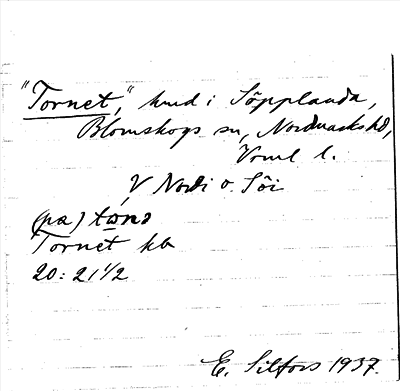 "Tornet", hmd i Söpplanda,
Blomskogs sn, Nordmarks hd,
Vrml l.
V Nordi o. Söi
(pa) tωnə
Tornet ka
20:21 1/2
E. Silfors 1937.